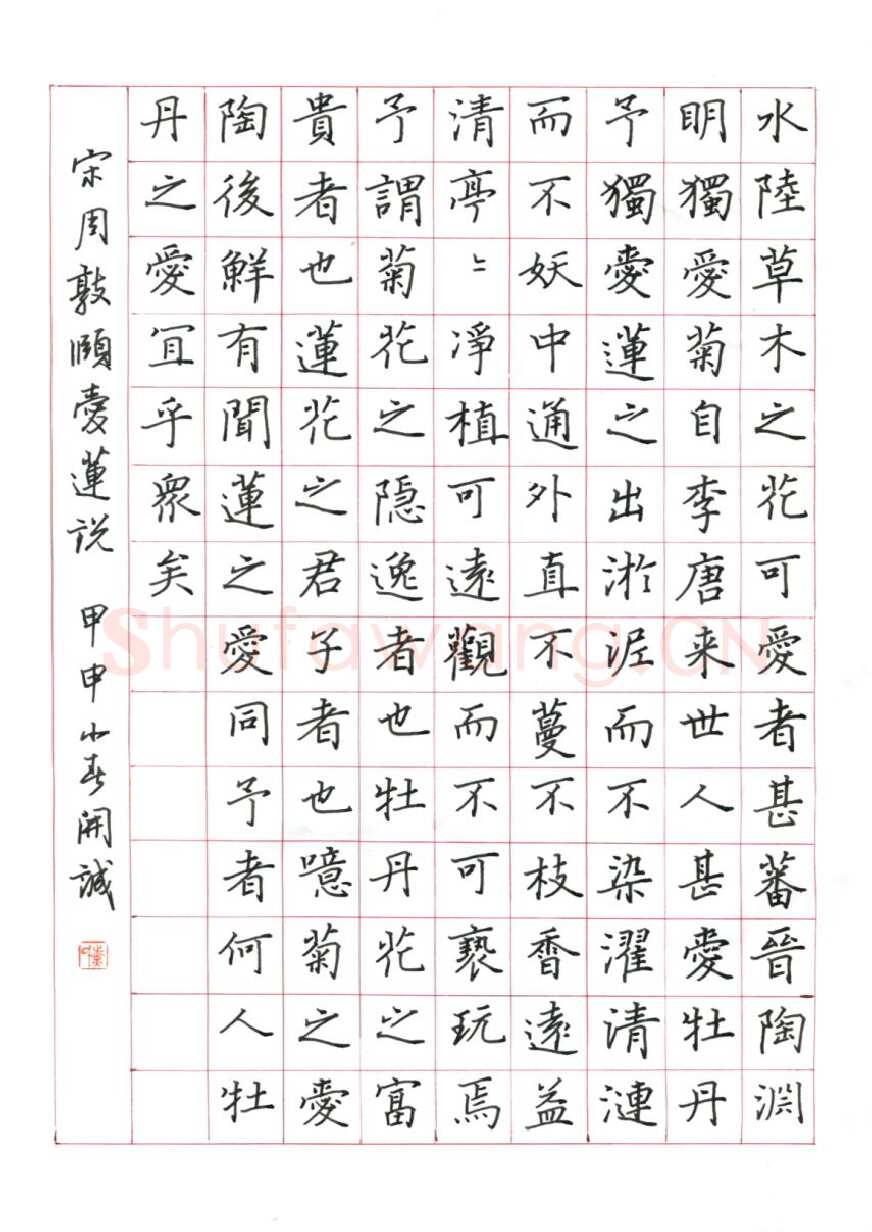 水陸草木之花可愛者甚蕃晉陶淵
明獨愛菊自李唐来世人甚愛牡丹
予獨愛蓮之出淤泥而不染濯清漣
而不妖中通外直不蔓不枝香遠益
清亭〻淨植可遠觀而不可褻玩焉
予謂菊花之隱逸者也牡丹花之富
貴者也蓮花之君子者也噫菊之愛
陶後鮮有聞蓮之愛同予者何人牡
丹之愛宜乎眾矣
宋周敦頤愛蓮説 甲申小春開誠
Shufawang.CN